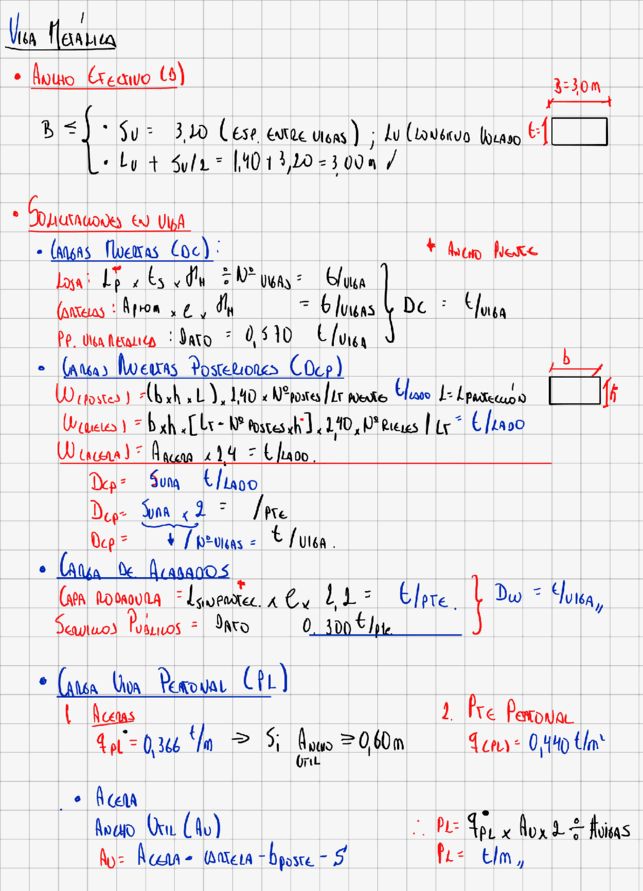 VIGA METÁLICA
• ANCHO EFECTIVO (B)
B ≤ { • Sv = 3,20 (ESP. ENTRE VIGAS) ; LV (LONGITUD VOLADO
• Lv + Sv/2 = 1,40 + 3,20 = 3,00 m ✓
B = 3,0 m
t=
• SOLICITACIONES EN VIGA
• CARGAS MUERTAS (DC):
* ANCHO PUENTE
LOSA: Lp* x ts x γH ÷ Nº VIGAS = t/VIGA
CARTELAS: APROM x e x γH = t/VIGAS
PP. VIGA METALICA: DATO = 0,570 t/VIGA
} DC = t/VIGA
• CARGAS MUERTAS POSTERIORES (DCP)
b
h
W(POSTES) = (b x h x L) x 2,40 x Nº POSTES / LT PUENTE t/LADO L = LPROTECCIÓN
W(RIELES) = b x h x [LT - Nº POSTES x h] x 2,40 x Nº RIELES / LT = t/LADO
W(ACERA) = AACERA x 2,4 = t/LADO.
DCP = SUMA t/LADO
DCP = SUMA x 2 = /PTE
DCP = ↓ / Nº VIGAS = t/VIGA.
• CARGA DE ACABADOS
CAPA RODADURA = LSINPROTEC.* x e x 2,2 = t/PTE.
SERVICIOS PÚBLICOS = DATO 0.300 t/pte
} DW = t/VIGA,,
• CARGA VIVA PEATONAL (PL)
1 ACERAS
qPL• = 0,366 t/m ⇒ Si ANCHO UTIL ≥ 0,60 m
2. PTE PEATONAL
q(PL) = 0,440 t/m²
• ACERA
ANCHO UTIL (AU)
AU = ACERA - CARTELA - bPOSTE - S
∴ PL = qPL• x AU x 2 ÷ #VIGAS
PL = t/m,,